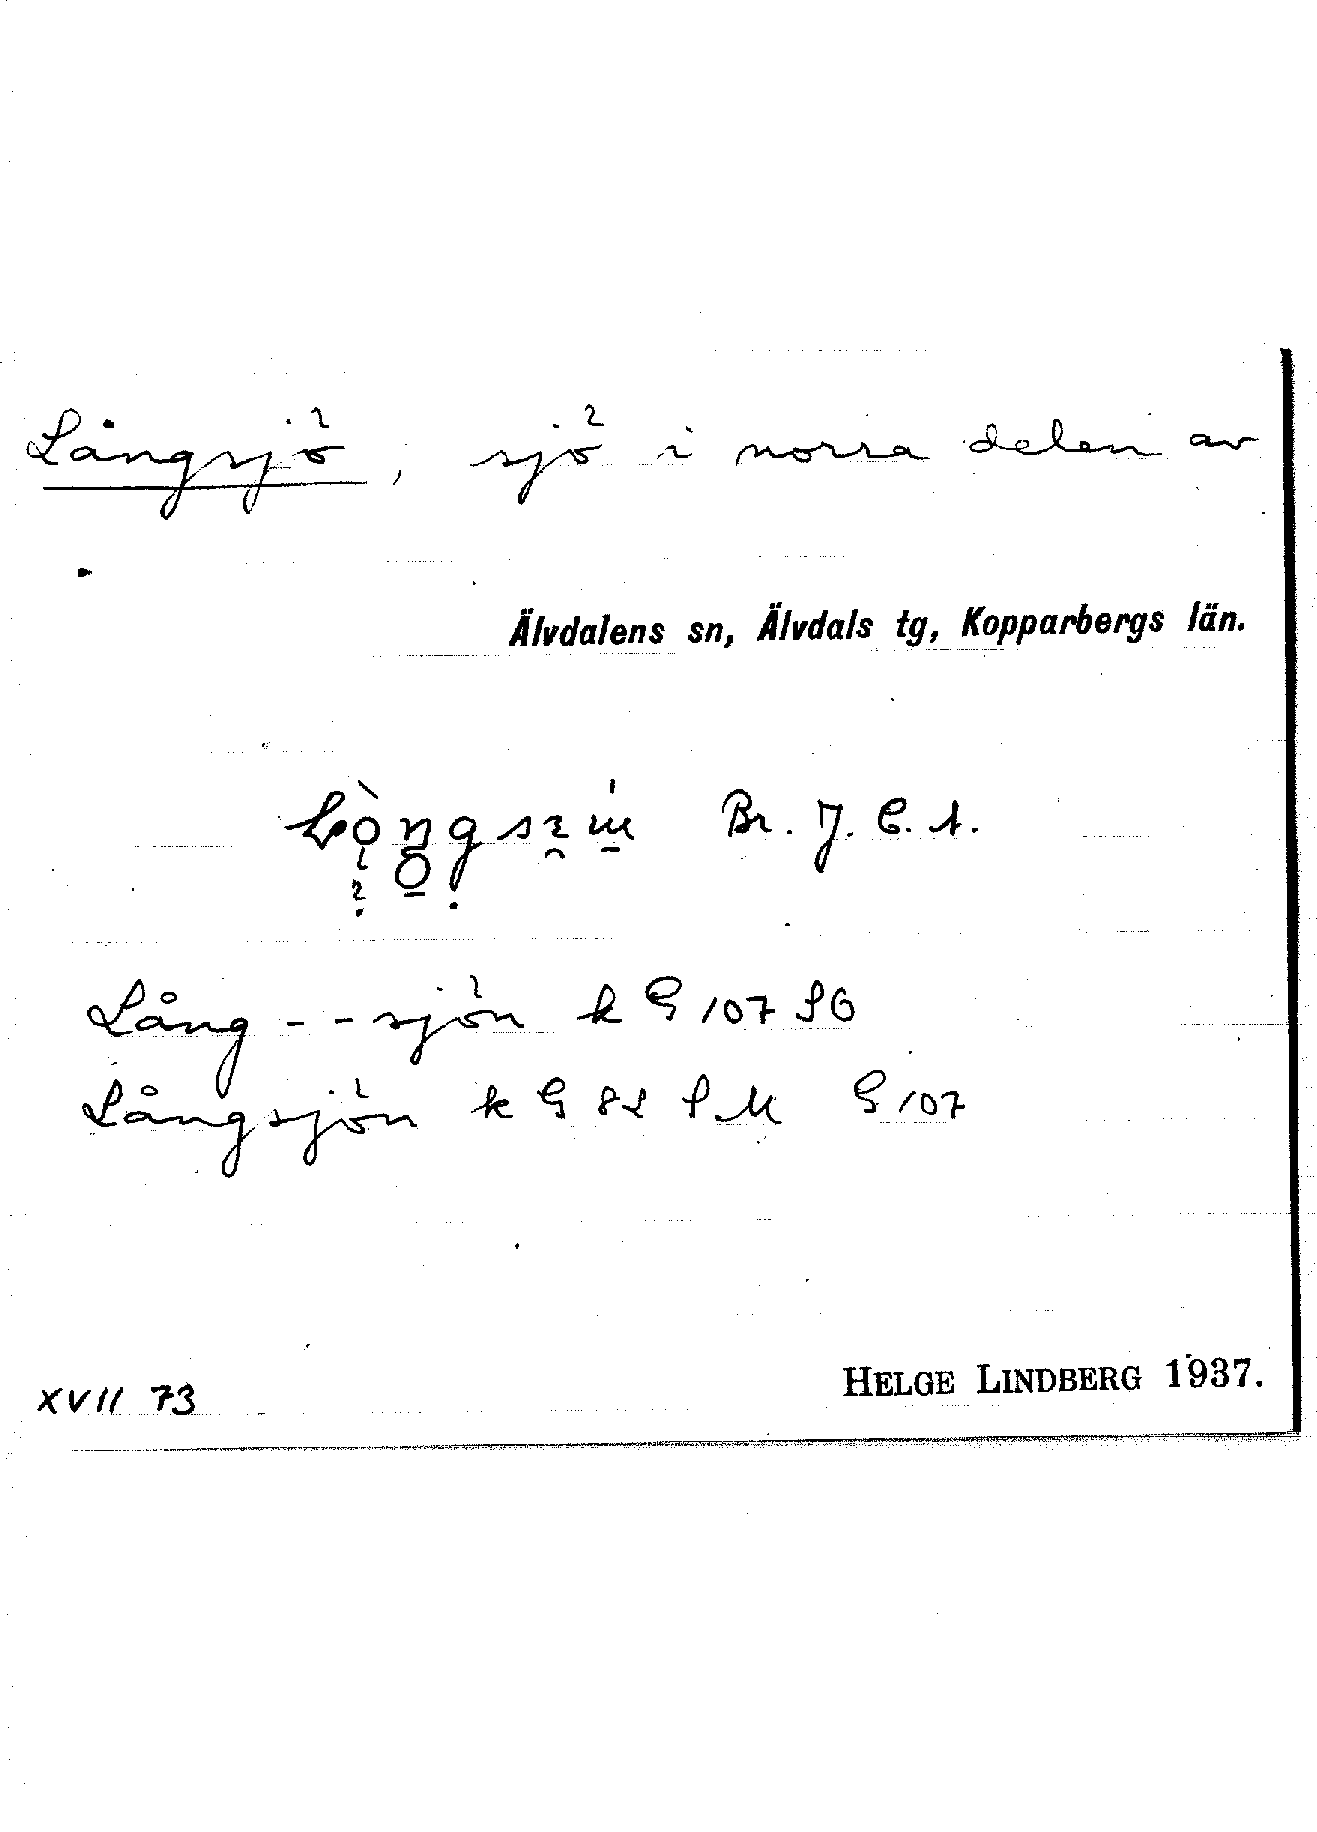 Långsjö, sjö i norra delen av
Älvdalens sn, Älvdals tg, Kopparbergs län.
Br. J. C. A.
Lång - - sjön k G 107 SÖ
Långsjön k G 82 S M G 107
XVII 73
HELGE LINDBERG 1937.